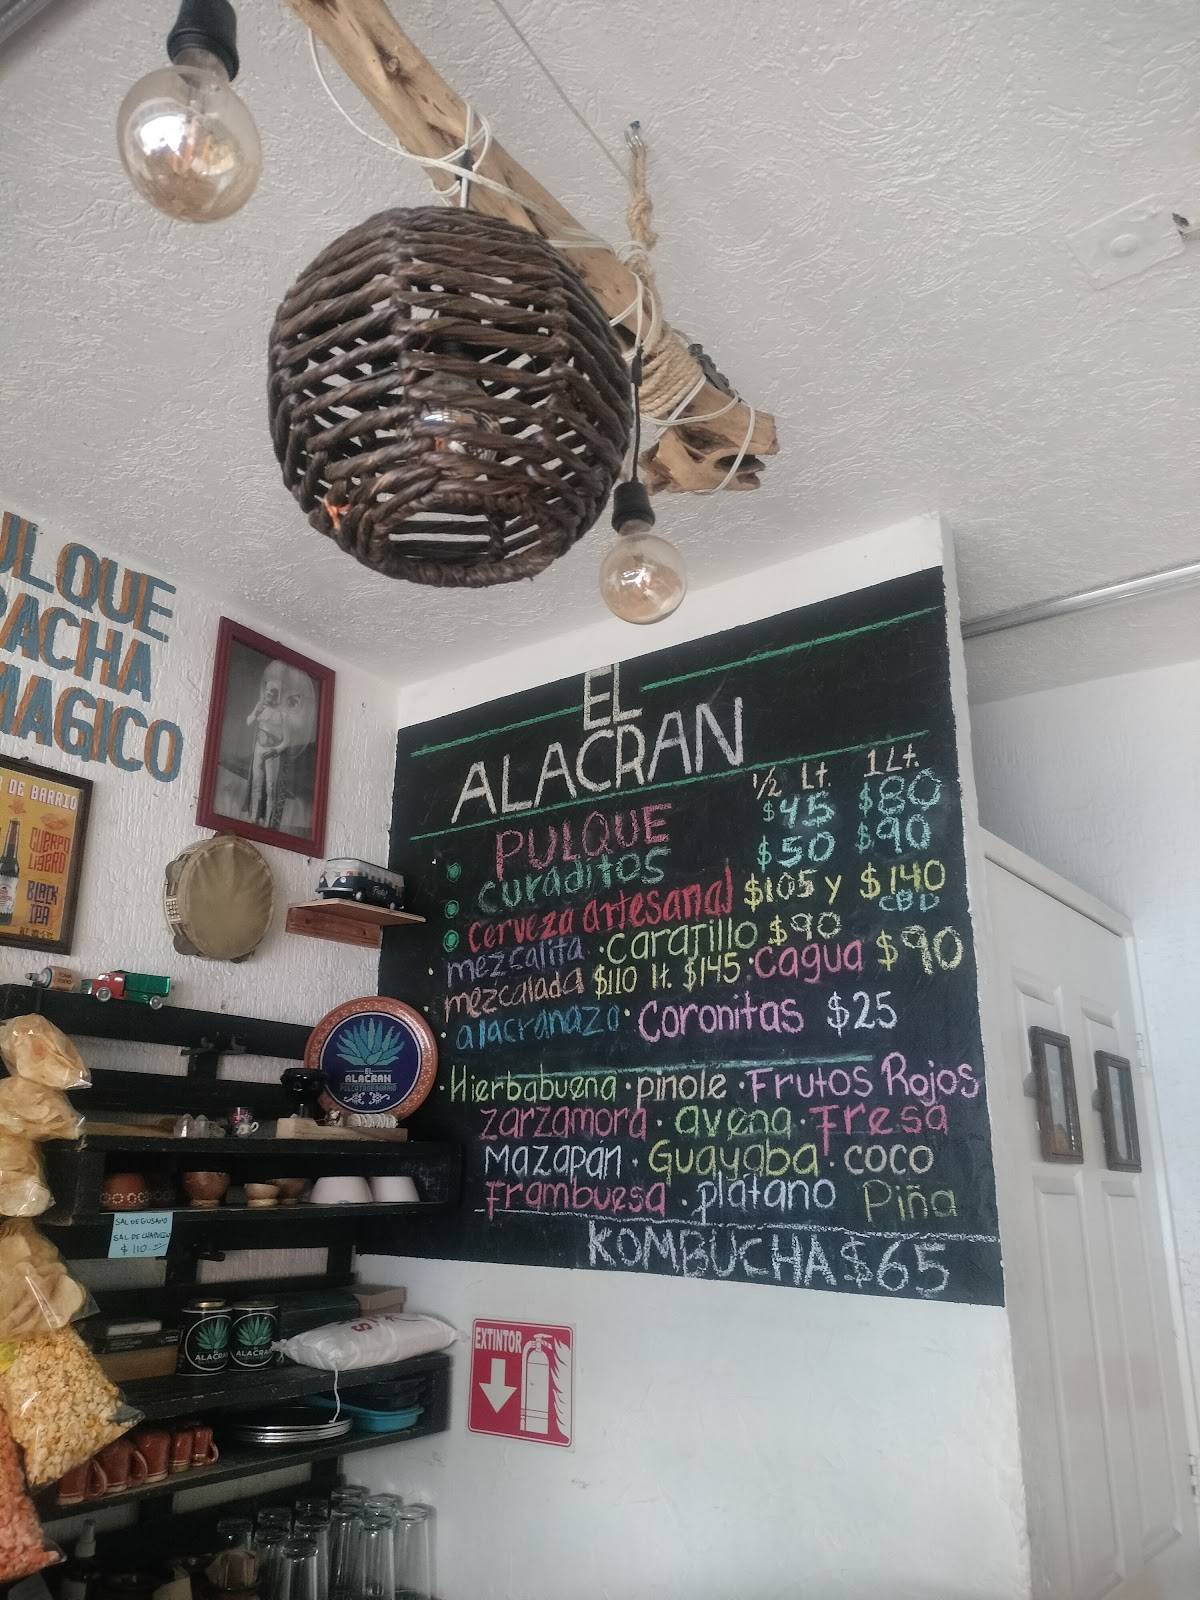 ULQUE
PACHA
MAGICO
DE BARRIO
CUERPO
LIGERO
BLACK
IPA
EL
ALACRAN
1/2 Lt. 1 Lt.
PULQUE $45 $80
curaditos $50 $90
cerveza artesanal $105 y $140
CBD
mezcalita · carajillo $90
mezcalada $110 lt. $145 · cagua $90
alacranazo · coronitas $25
· Hierbabuena · pinole · Frutos Rojos
zarzamora · avena · Fresa
Mazapán · Guayaba · coco
Frambuesa · plátano Piña
KOMBUCHA $65
EL
ALACRAN
SAL DE GUSANO
SAL DE CHAPULIN
$ 110
ALACRAN
ALACRAN
EXTINTOR